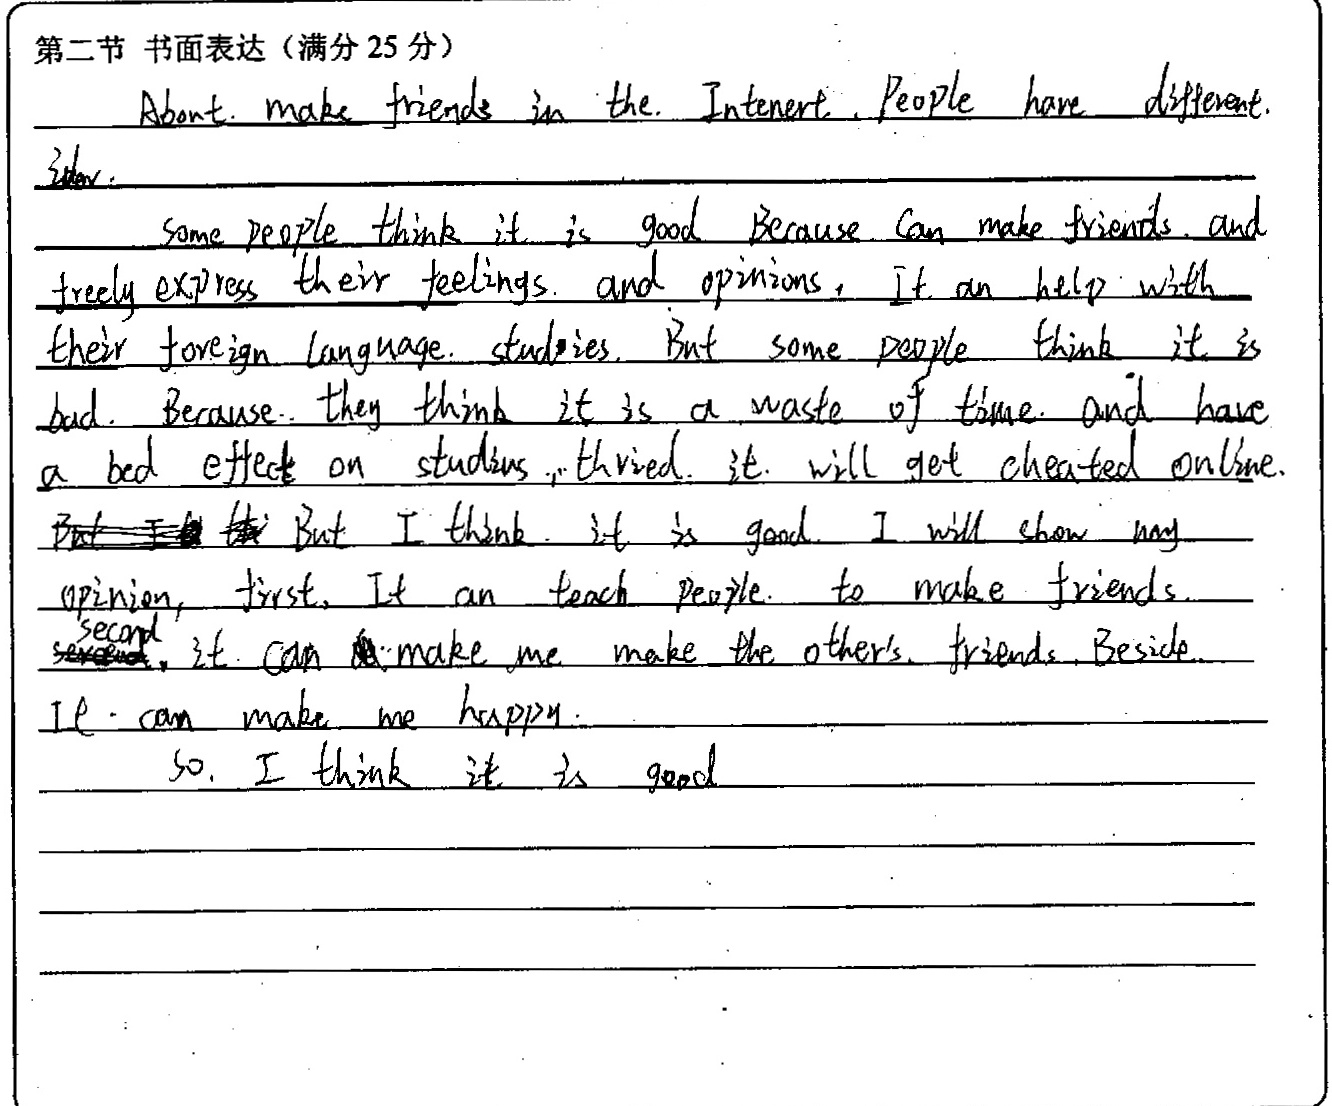 第二节 书面表达（满分 25 分）
About make friends in the Intenert. People have different.
some people think it is good Because Can make friends. and
freely express their feelings. and opinions. It an help with
their foreign language. studies. But some people think it is
bad. Because. they think it is a waste of time. and have
a bed effect on studins, thried. it. will get cheated online.
But I think. it is good. I will show my
opinion, first. It an teach people. to make friends.
second, it can make me make the other's. friends. Beside
It can make me happy.
so. I think it is good